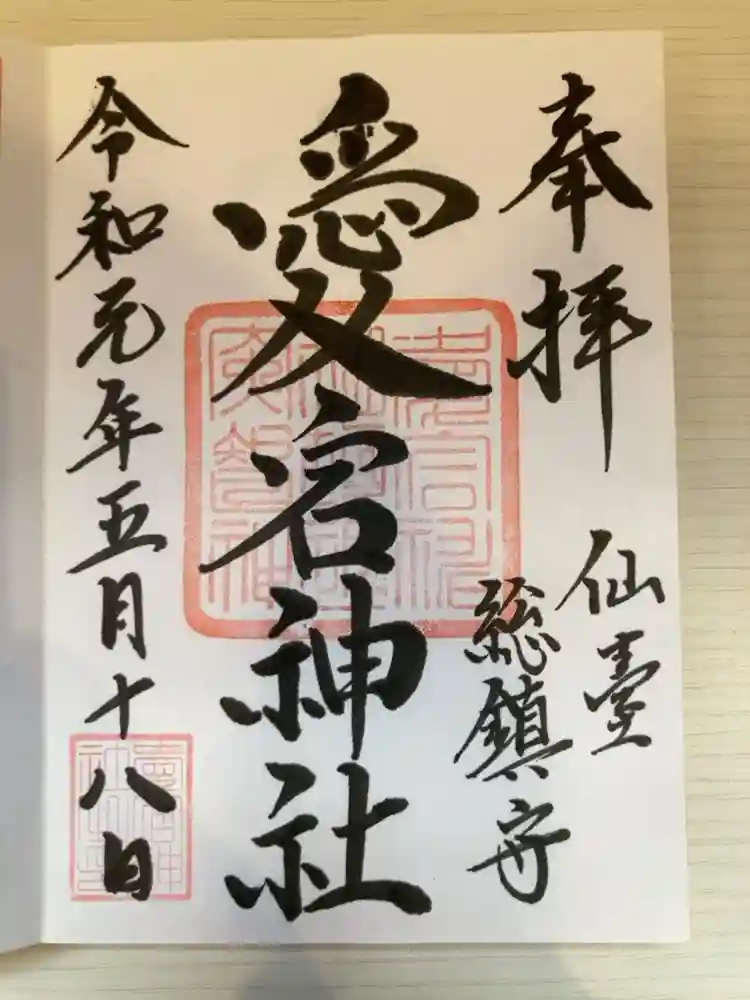 奉拝
仙臺
総鎮守
愛宕神社
令和元年五月十八日